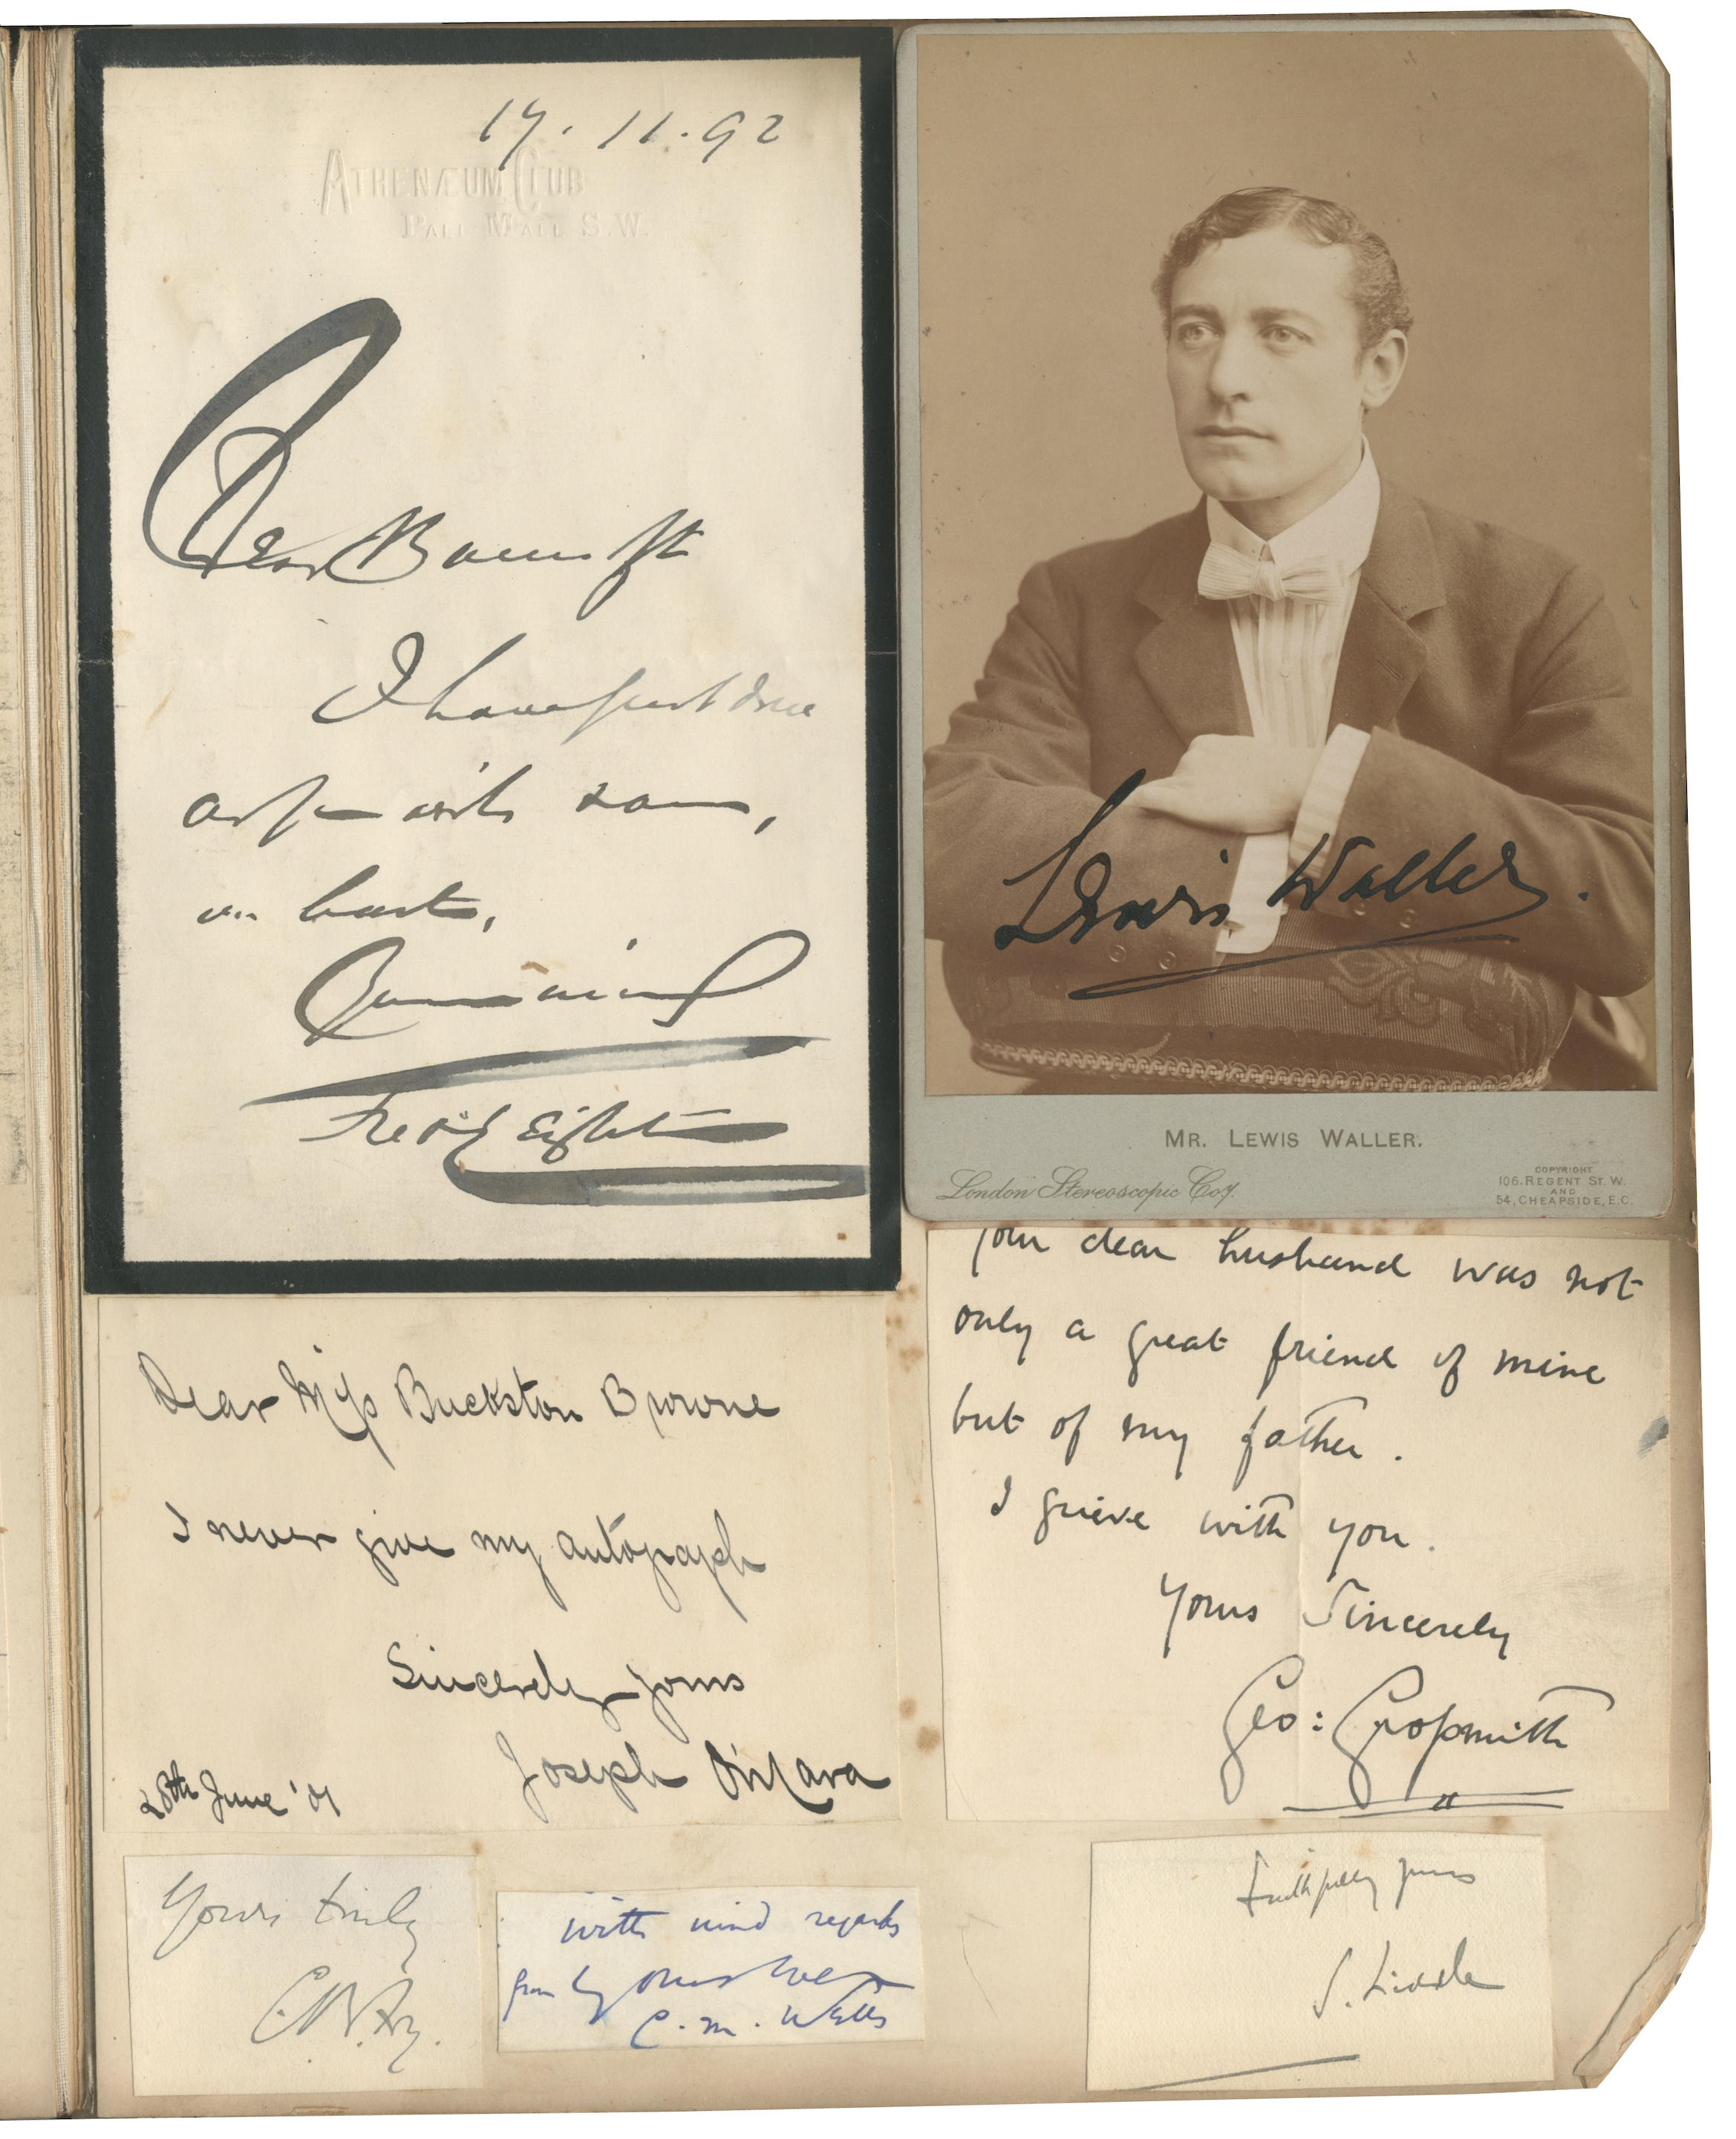 17. 11. 92
ATHENÆUM CLUB
PALL MALL S.W.
Dear Bancroft
I have just done
with
Dear Miss Buckston Browne
I never give my autograph
Sincerely yours
Joseph O'Mara
28th June '01
Yours truly
C. B. Fry.
with kind regards
from yours
C. M. Wells
Lewis Waller.
MR. LEWIS WALLER.
London Stereoscopic Coy.
COPYRIGHT
106. REGENT ST. W.
AND
54, CHEAPSIDE, E.C.
Your dear husband was not
only a great friend of mine
but of my father.
I grieve with you.
Yours Sincerely
Geo: Grossmith
Faithfully yours
J. Liddle